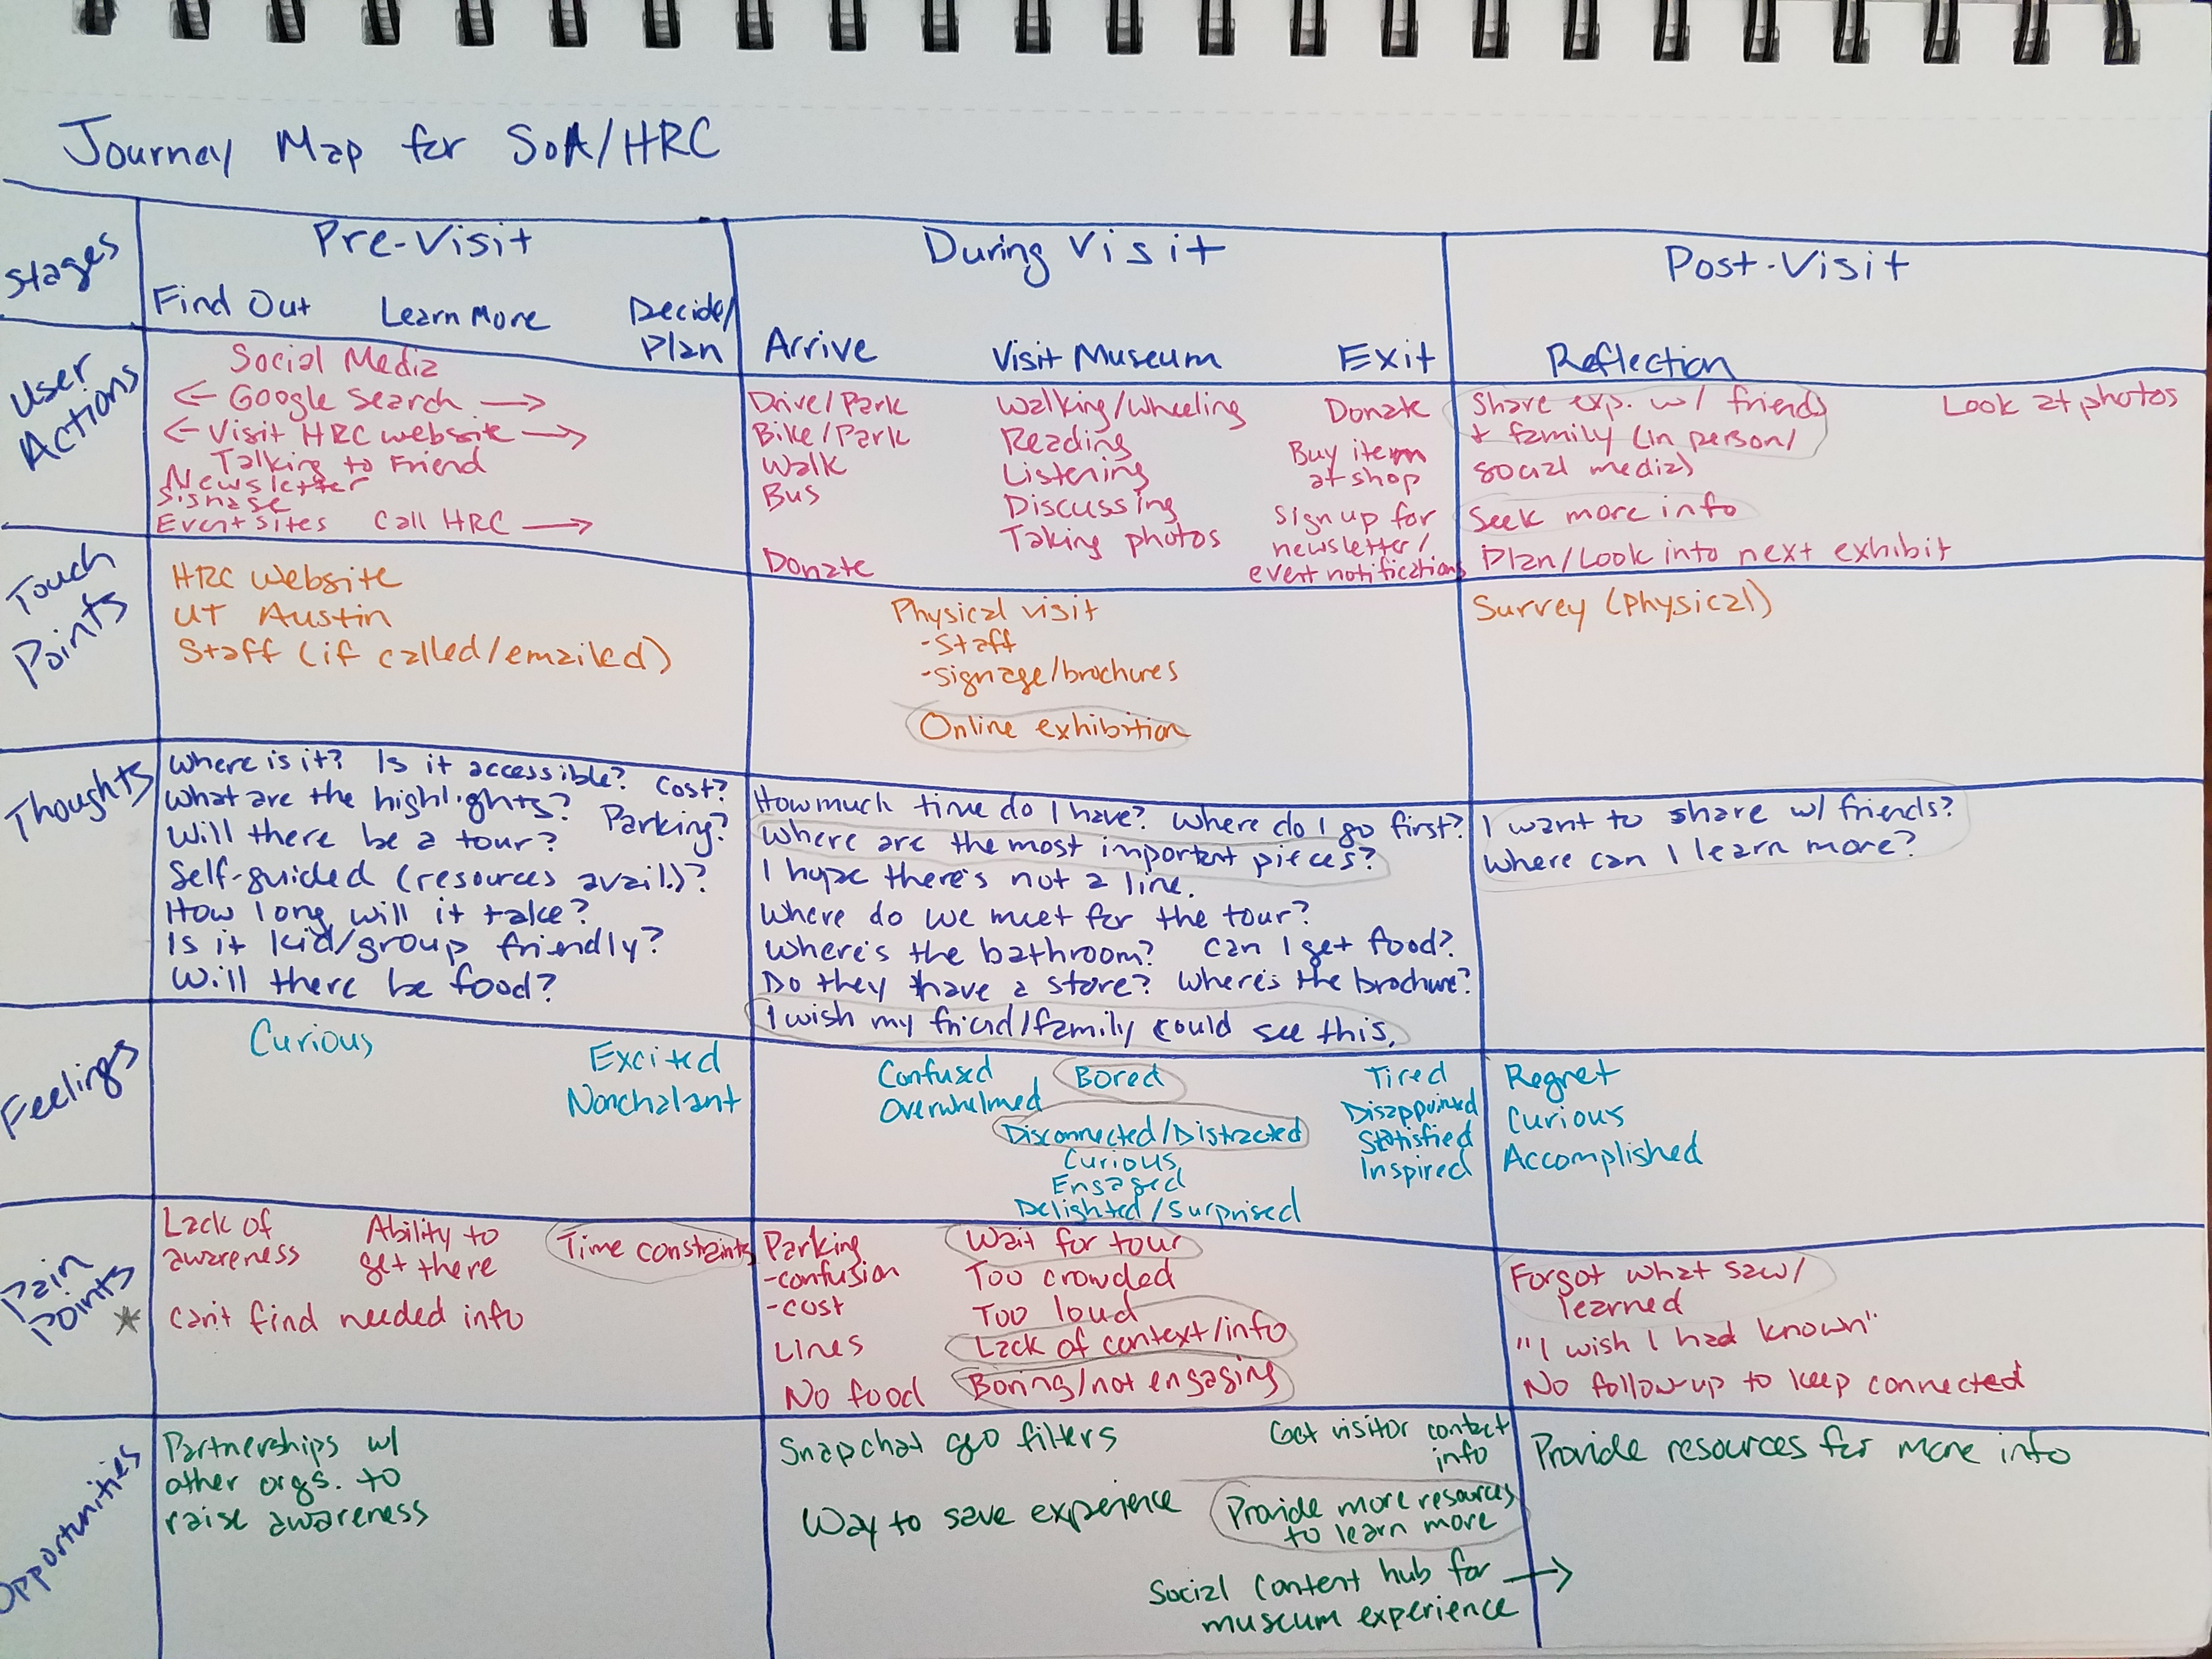 Journal Map for SoA/HRC
Pre-Visit
During Visit
Post-Visit
Stages
Find Out
Learn More
Decide/
Plan
Arrive
Visit Museum
Exit
Reflection
User
Actions
Social Media
← Google Search →
← Visit HRC website →
Talking to Friend
Newsletter
Signage
Event sites
Call HRC →
Drive/Park
Bike/Park
Walk
Bus
Donate
Walking/Wheeling
Reading
Listening
Discussing
Taking photos
Donate
Buy item
at shop
Sign up for
newsletter/
event notifications
Share exp. w/ friends
+ family (in person/
social media)
Seek more info
Plan/Look into next exhibit
Look at photos
Touch
Points
HRC Website
UT Austin
Staff (if called/emailed)
Physical visit
- Staff
- Signage/brochures
Online exhibition
Survey (physical)
Thoughts
Where is it? Is it accessible? Cost?
What are the highlights? Parking?
Will there be a tour?
Self-guided (resources avail.)?
How long will it take?
Is it kid/group friendly?
Will there be food?
How much time do I have? Where do I go first?
Where are the most important pieces?
I hope there's not a line.
Where do we meet for the tour?
Where's the bathroom? Can I get food?
Do they have a store? Where's the brochure?
I wish my friend/family could see this.
I want to share w/ friends?
Where can I learn more?
Feelings
Curious
Excited
Nonchalant
Confused
Overwhelmed
Bored
Disconnected/Distracted
Curious
Engaged
Delighted/Surprised
Tired
Disappointed
Satisfied
Inspired
Regret
Curious
Accomplished
Pain
*
Lack of
awareness
Ability to
get there
Can't find needed info
Time constraints
Parking
-confusion
-cost
Lines
No food
Wait for tour
Too crowded
Too loud
Lack of context/info
Boring/not engaging
Forgot what saw/
learned
"I wish I had known"
No follow-up to keep connected
Opportunities
Partnerships w/
other orgs. to
raise awareness
Snapchat geo filters
Way to save experience
Get visitor contact
info
Provide more resources
to learn more
Social content hub for →
museum experience
Provide resources for more info